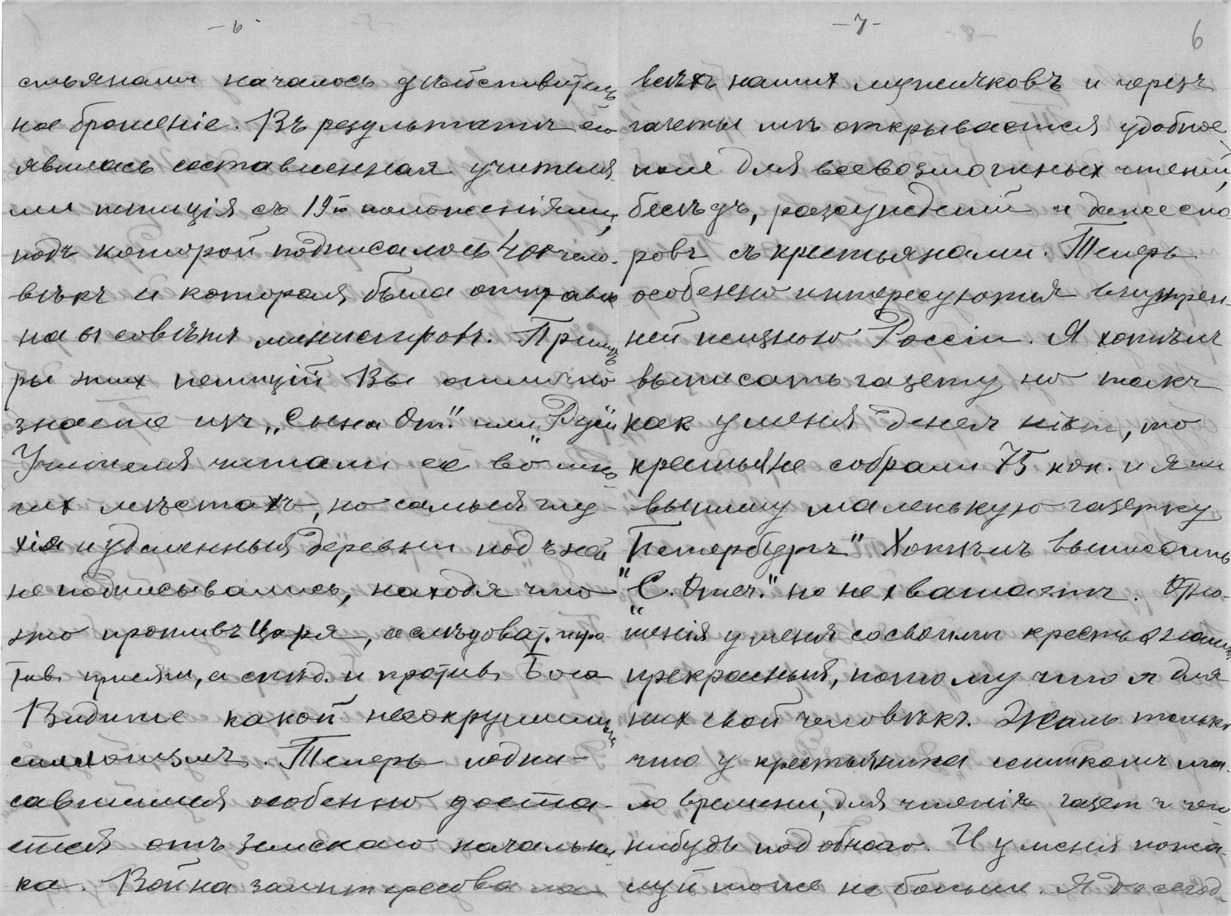 -6-
стьянами началось действитель
ное броженіе. Въ результатѣ его
явилась составленная учителя
ми петиція съ 19ю положеніями,
подъ которой подписалось 400 чело-
вѣкъ и которая была отправле
на въ совѣтъ министровъ. Примѣ
ры этих петицій Вы отлично
знаете изъ „Сына От." или „Руси
Учителя читали ее во мно-
гих мѣстахъ, но самыя глу-
хія и удаленныя деревни подъ ней
не подписывались, находя что
это противъ Царя, а слѣдоват. про
тив присяги, а слѣд. и против Бога
Видите какой несокрушимый
силлогизмъ. Теперь подпи-
савшимся особенно доста-
ется отъ земскаго начальни
ка. Война заинтересовала
-7-
6
всѣхъ наших мужичковъ и черезъ
газеты мнѣ открывается удобное
поле для всевозможных чтеній,
бесѣдъ, разсужденій и даже спо
ровъ съ крестьянами. Теперь
особенно интересуются внутрен-
ней жизнью Россіи. Я хотѣлъ
выписать газету но такъ
как у меня денегъ нѣт, то
крестьяне собрали 75 коп. и я им
выпишу маленькую газетку
"Петербургъ" Хотѣлъ выписать
"С. Отеч." но не хватаетъ. Отно-
шенія у меня со своими крестьянами
прекрасныя, потому что я для
них свой человѣкъ. Жаль только
что у крестьянина слишкомъ ма
ло времени, для чтенія газет и чего
нибудь подобнаго. И у меня пожа-
луй тоже не больше. Я до сегод